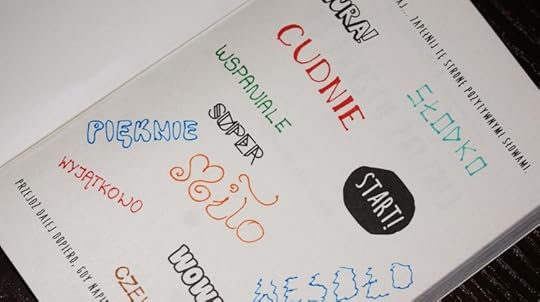 WRA!
AJ... ZAPEŁNIJ TĘ STRONĘ POZYTYWNYMI SŁOWAMI.
CUDNIE
WSPANIALE
SŁODKO
SUPER
PIĘKNIE
MIŁO
WYJĄTKOWO
START!
PRZEJDŹ DALEJ DOPIERO, GDY NAPE
WOW!
WESOŁO
CZE